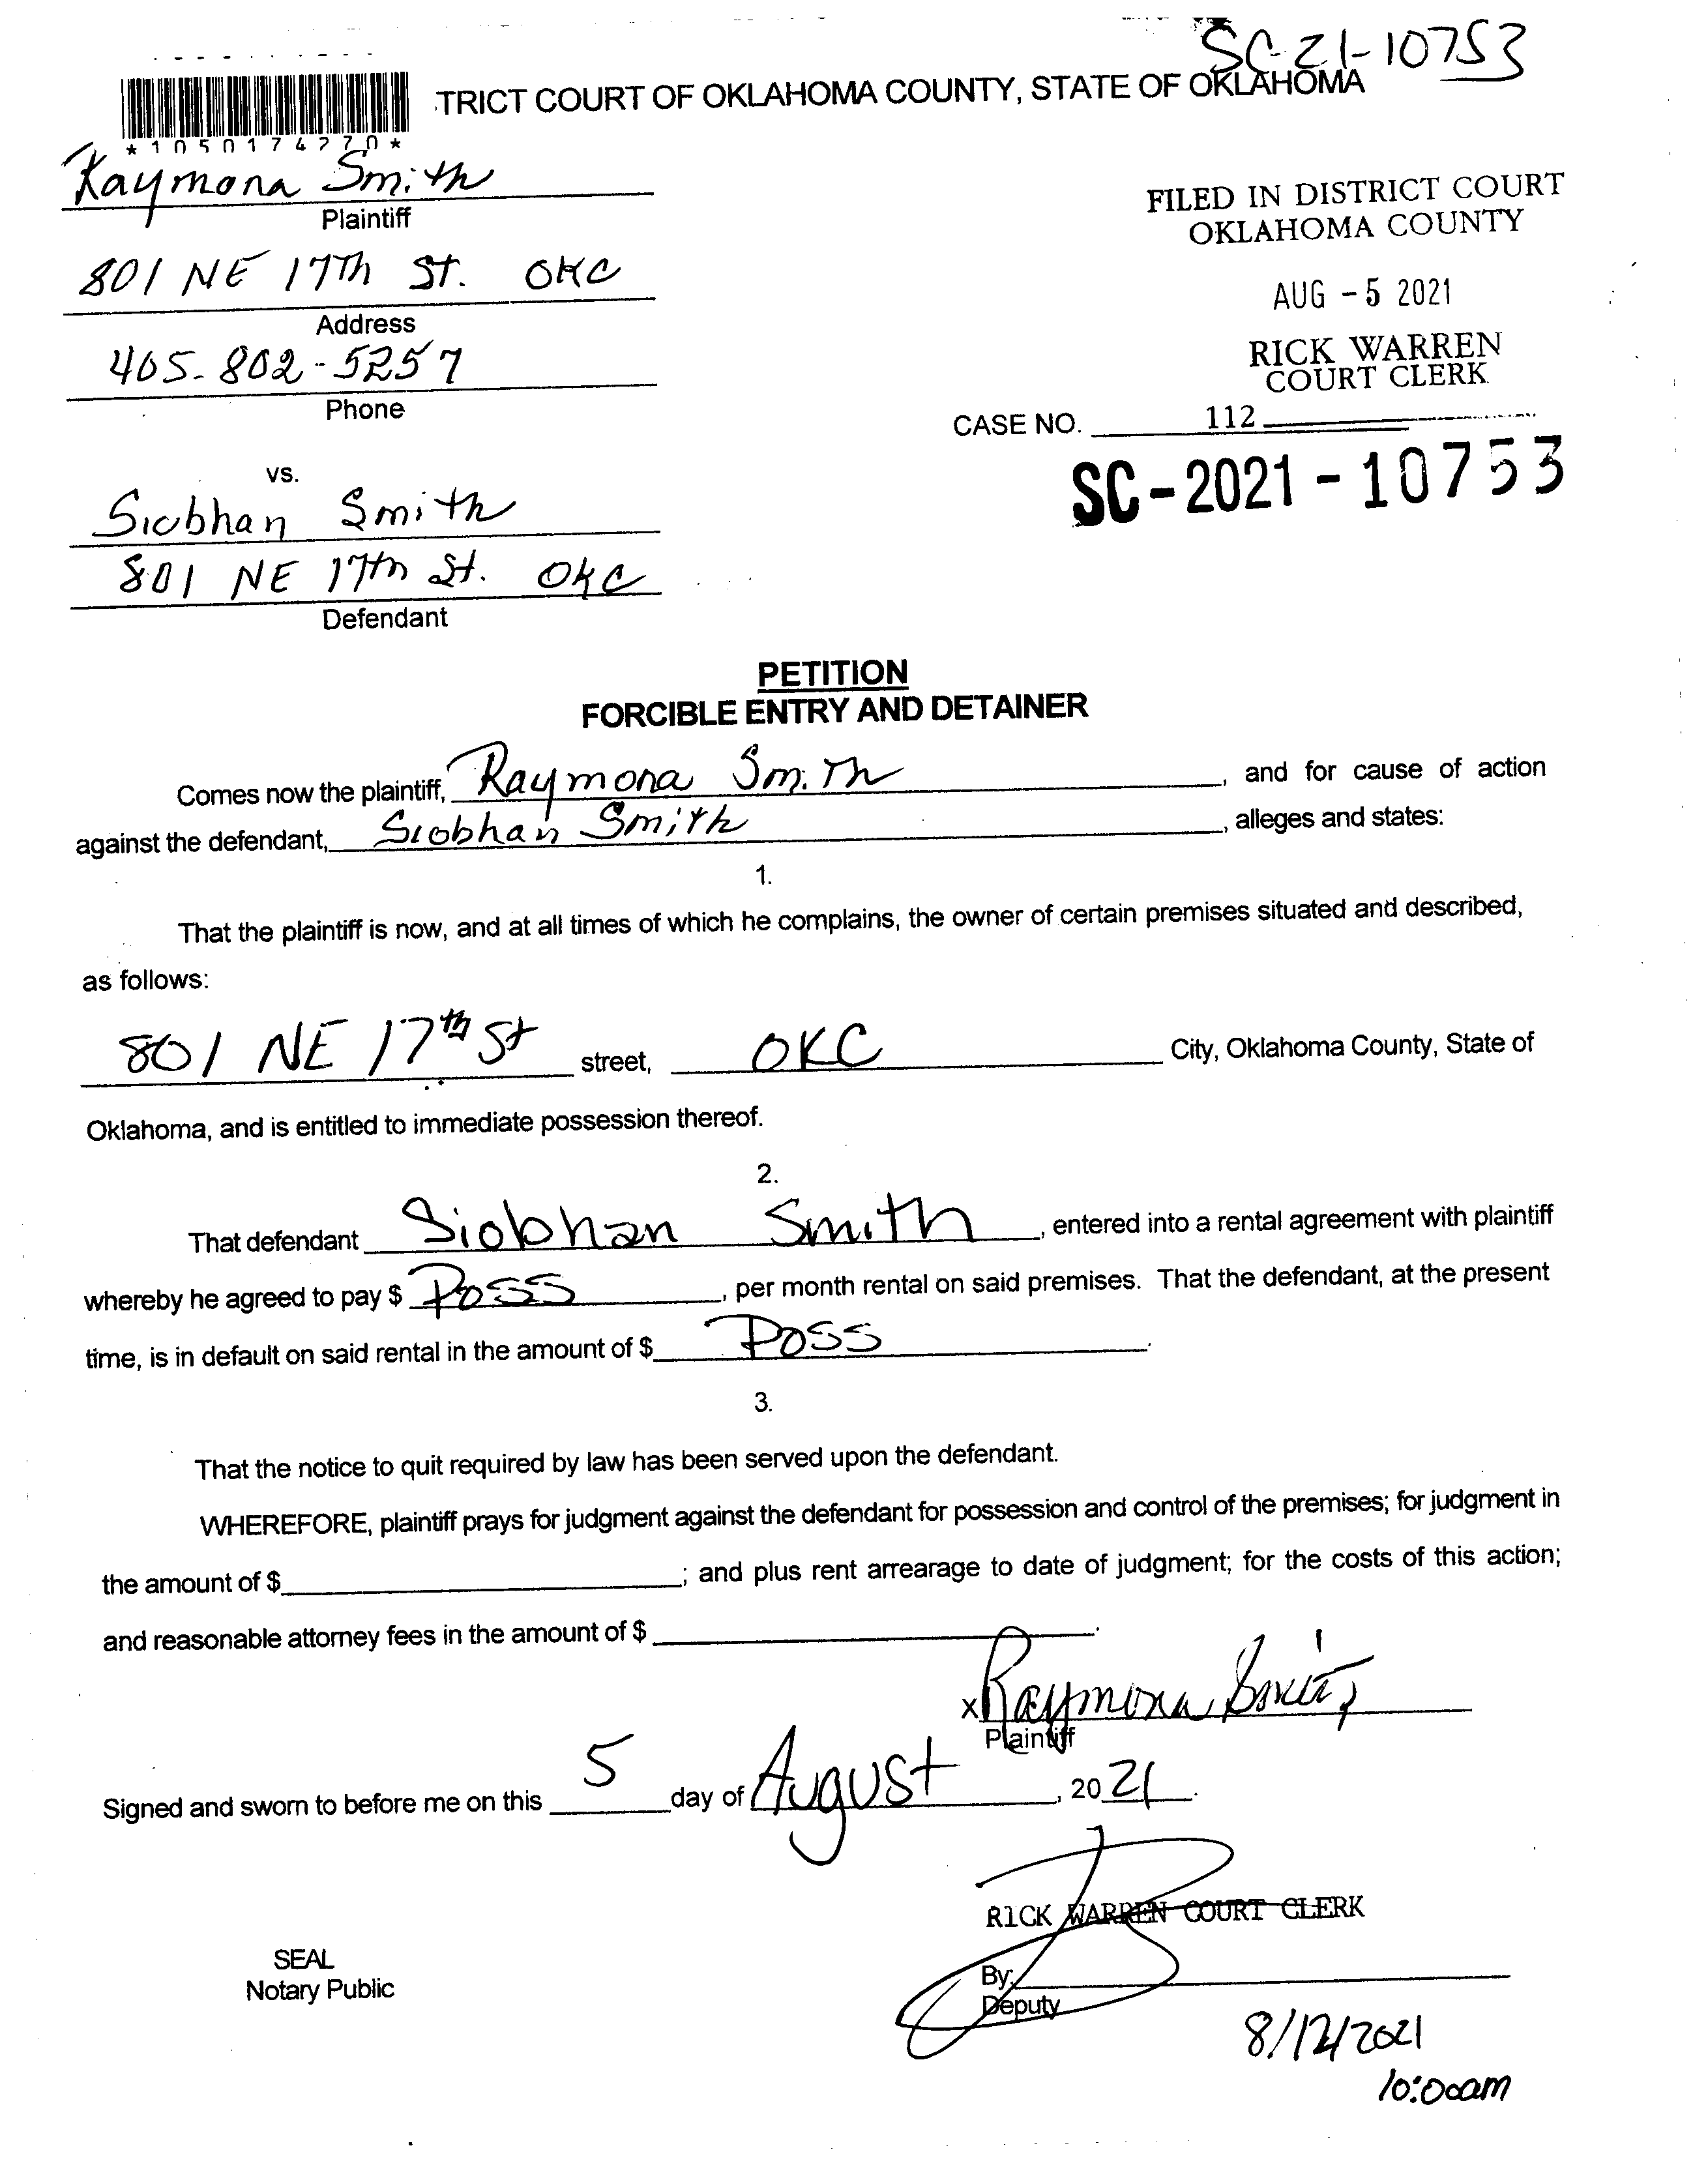 SC-21-10753
TRICT COURT OF OKLAHOMA COUNTY, STATE OF OKLAHOMA
*1050174270*
Raymona Smith
Plaintiff
801 NE 17Th ST. OKC
Address
405-802-5257
Phone
FILED IN DISTRICT COURT
OKLAHOMA COUNTY
AUG -5 2021
RICK WARREN
COURT CLERK
CASE NO. 112
SC-2021-10753
vs.
Siobhan Smith
801 NE 17th St. OKC
Defendant
PETITION
FORCIBLE ENTRY AND DETAINER
Comes now the plaintiff, Raymona SmiTh, and for cause of action
against the defendant, Siobhan Smith, alleges and states:
1.
That the plaintiff is now, and at all times of which he complains, the owner of certain premises situated and described,
as follows:
801 NE 17th St street, OKC City, Oklahoma County, State of
Oklahoma, and is entitled to immediate possession thereof.
2.
That defendant Siobhan Smith, entered into a rental agreement with plaintiff
whereby he agreed to pay $ Poss, per month rental on said premises. That the defendant, at the present
time, is in default on said rental in the amount of $ Poss.
3.
That the notice to quit required by law has been served upon the defendant.
WHEREFORE, plaintiff prays for judgment against the defendant for possession and control of the premises; for judgment in
the amount of $ ; and plus rent arrearage to date of judgment; for the costs of this action;
and reasonable attorney fees in the amount of $ .
x Raymona Smith
Plaintiff
Signed and sworn to before me on this 5 day of August, 2021.
RICK WARREN COURT CLERK
SEAL
Notary Public
By:
Deputy
8/12/2021
10:00am